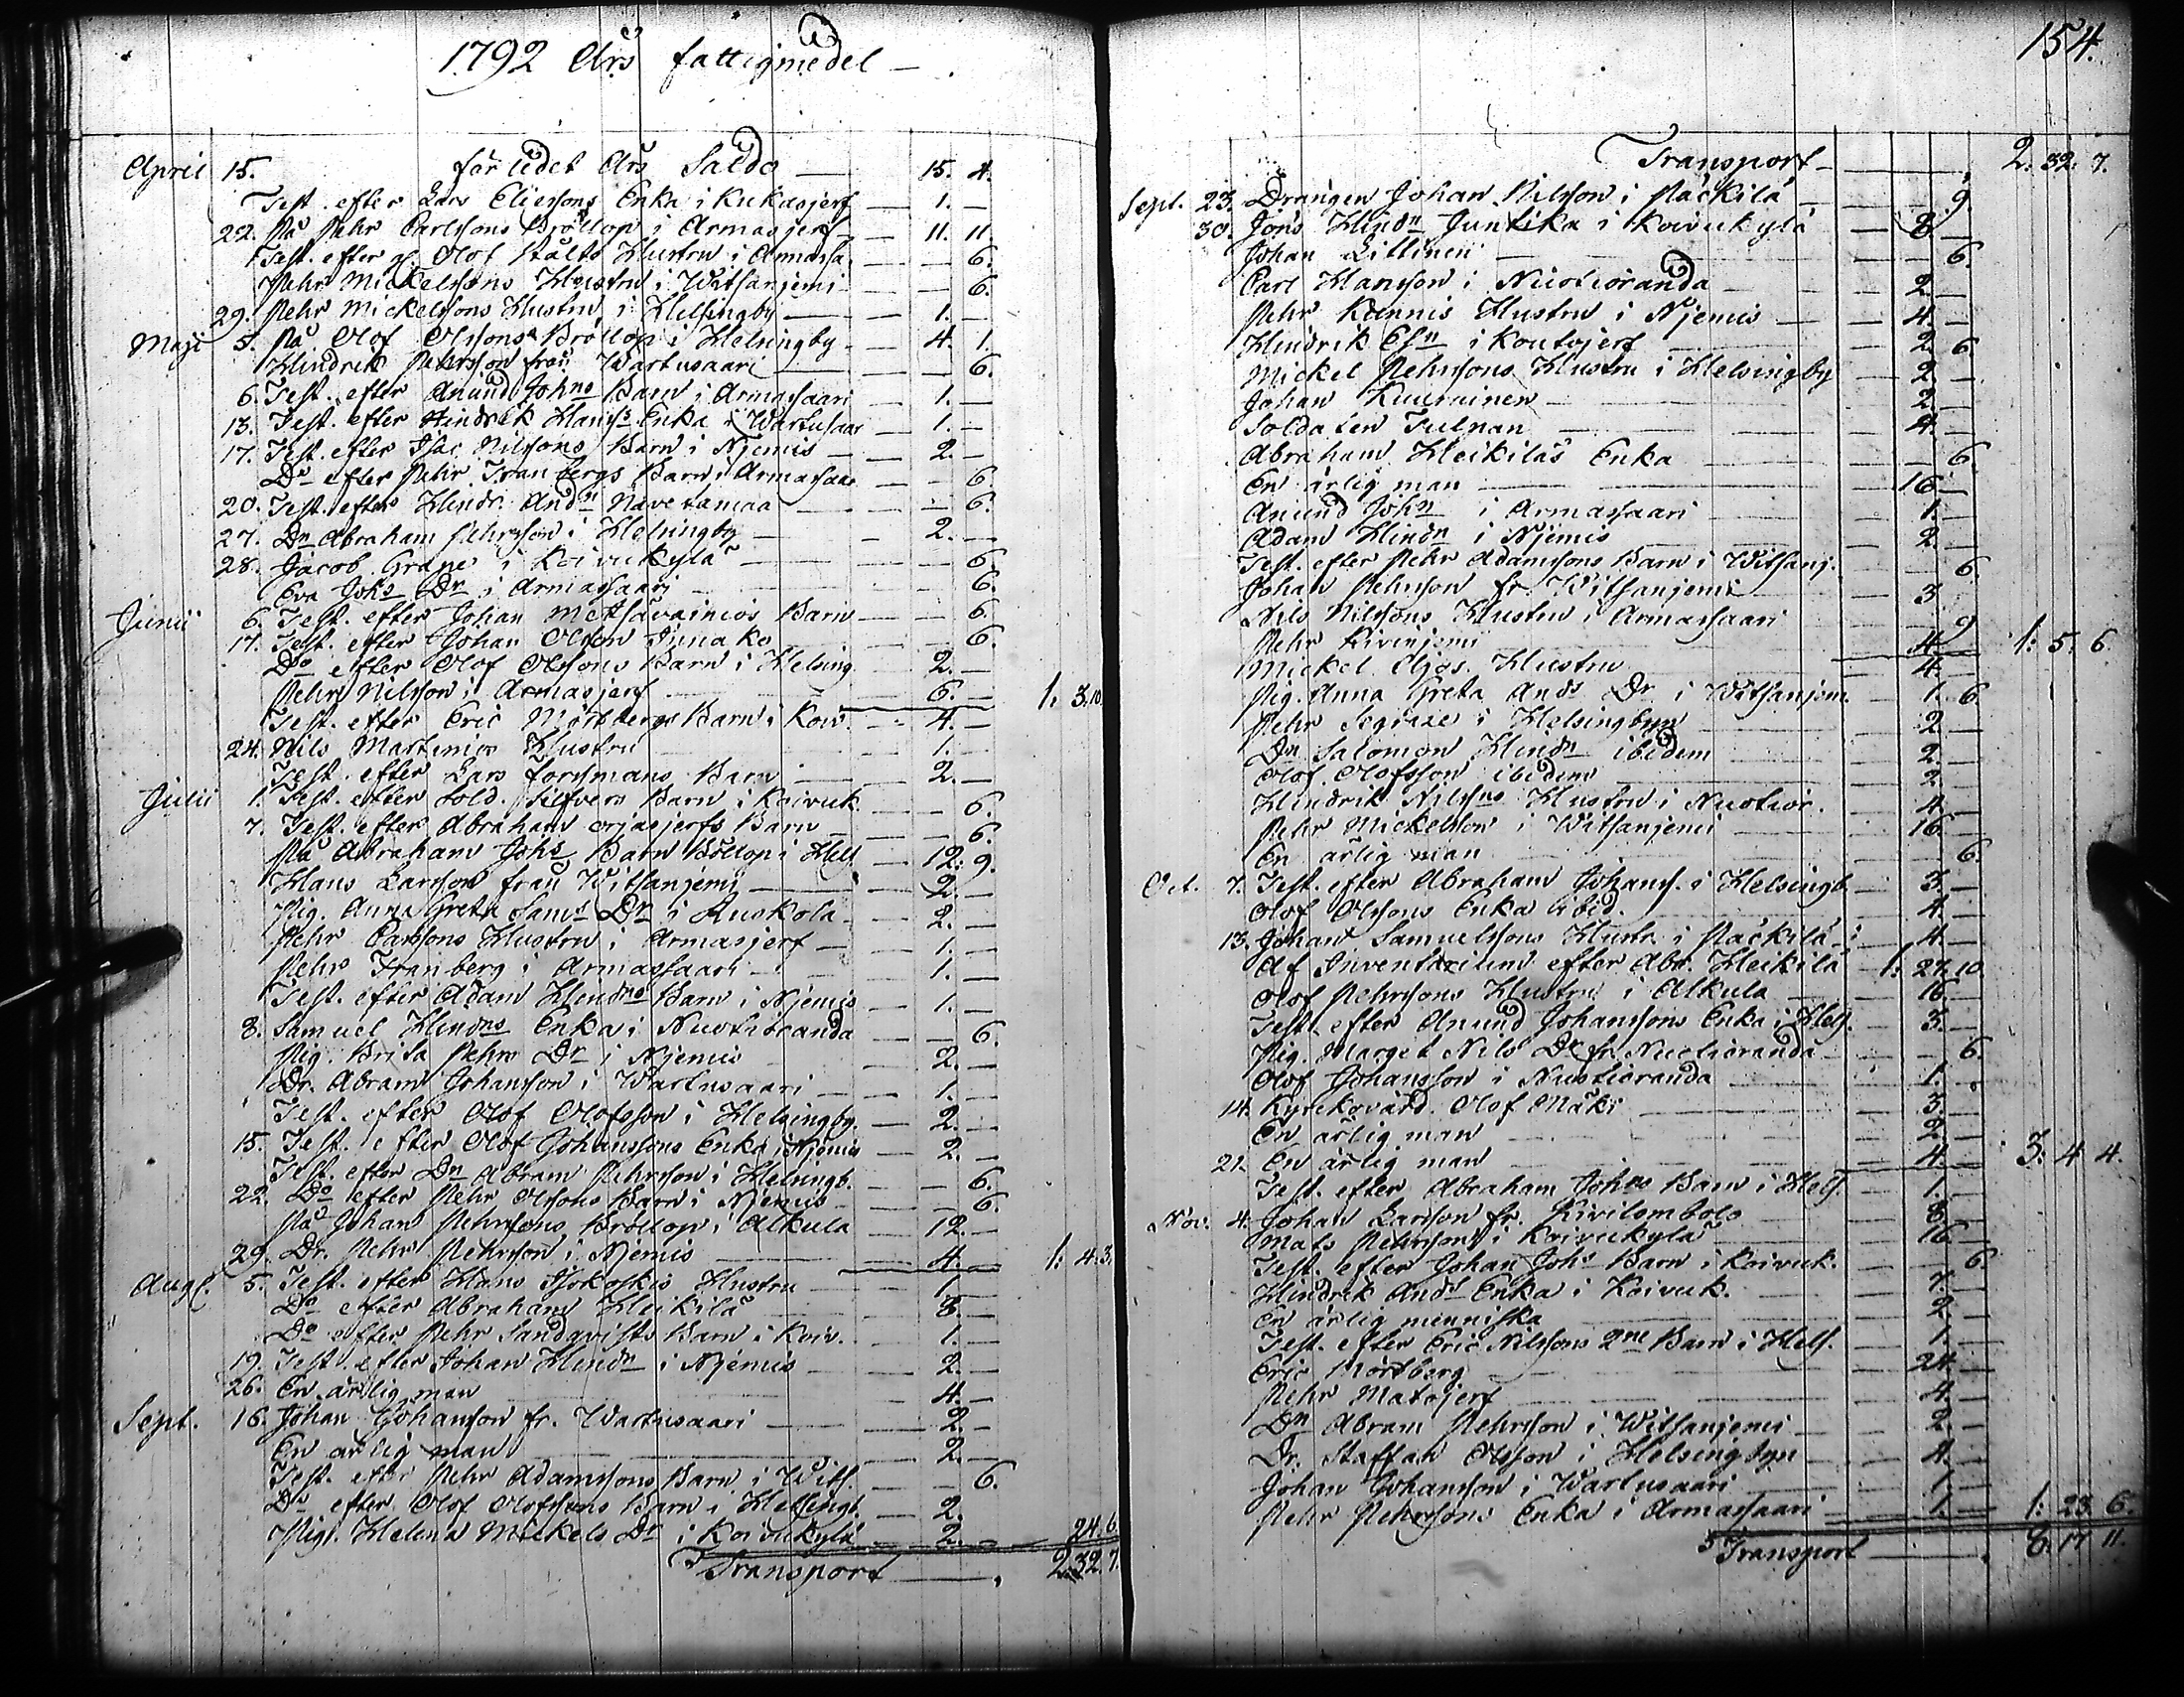 1792 Års fattigmedel —
April 15. förlidet Års Saldo — 15. 4.
Test. efter Lars Eliessons Enka i Kukasjerf — 1. —
22. På Pehr Carlssons Bröllop i Armasjerf — 11. 11
Test. efter Olof Stålts Hustru i Armassa. — 6.
Pehr Mickelssons Hustru i Witsanjemi — 6.
29. Pehr Mickelssons Hustru i Helsingby — 1. —
Maji 5. På Olof Olssons Bröllop i Helsingby — 4. 1.
Hindrik Pehrsson från Wartusaari — 6.
6. Test. efter Anund Johns Barn i Armassaari — 1. —
13. Test. efter Hindrik Hanss Enka i Wartusaar — 1. —
17. Test. efter Isac Nilssons Barn i Njemis — 2. —
Do efter Pehr Franbergs Barn i Armassaar — 6.
20. Test. efter Hindr. Andn Navetamaa — 6.
27. Dn Abraham Pehrsson i Helsingby — 2. —
28. Jacob Grape i Koivukylä — 6.
Eva Johs Dr i Armassaari — 6.
Junii 6. Test. efter Johan Metsävainios Barn — 6.
17. Test. efter Johan Olsson — 6.
Do efter Olof Olssons Barn i Helsing. 2. —
Pehr Nilsson i Armasjerf — 6. — 1. 3. 10
Test. efter Eric Mörtbergs Barn i Koiv. — 4. —
24. Nils Martinios Hustru 1. —
Test. efter Lars Forssmans Barn — 2. —
Julii 1. Test. efter Sold. Silfvers Barn i Koivuk. — 6.
7. Test. efter Abraham Orjasjerfs Barn — 6.
På Abraham Johs Barn Böllop i Hels. — 12: 9.
Hans Larsson från Witsanjemi — 2. —
Pig. Anna Greta Sams Dr i Ruskola — 2. —
Pehr Carlssons Hustru i Armasjerf — 1. —
Pehr Franberg i Armassaari — 1. —
Test. efter Adam Hindns Barn i Njemis — 1. —
8. Samuel Hindns Enka i Nuotioranda — 6.
Pig. Brita Pehrs Dr i Njemis — 2. —
Dr. Abram Johansson i Wartusaari — 1. —
Test. efter Olof Olofsson i Helsingby. — 2. —
15. Test. efter Olof Johanssons Enka i Njemis — 2. —
Test. efter Dn Abram Pehrsson i Helsingb. — 6.
22. Do efter Pehr Olssons Barn i Njemis — 6.
På Johan Pehrssons Bröllop i Alkula — 12. —
29. Dr. Pehr Pehrsson i Njemis — 4. — 1: 4. 3.
Augs. 5. Test. efter Hans Hustru — 1 —
Do efter Abraham Heikilä — 8. —
Do efter Pehr Sandqvists Barn i Koiv. — 1. —
19. Test. efter Johan Hindn i Njemis — 2. —
26. En ärlig man — 4. —
Sept. 16. Johan Johansson fr. Wartusaari — 2. —
En ärlig man — 2. —
Test. efter Pehr Adamssons Barn i Wits. — 6.
Do efter Olof Olofssons Barn i Helsingb. — 2.
Pig. Helena Mickels Dr i Koivukylä — 2. — 24. 6.
Transport — 2. 32. 7.
154.
Transport — 2. 32. 7.
Sept. 23. Drängen Johan Nilsson i Päckilä — 9.
30. Jöns Hindn Juntika i Koivukylä — 8. —
Johan — 6.
Carl Hansson i Nuotioranda — 2. —
Pehr Kannis Hustru i Njemis — 4. —
Hindrik Esn i Koutojerf — 2. 6
Mickel Pehrssons Hustru i Helsingby — 2. —
Johan — 2. —
Soldaten Tulpan — 4. —
Abraham Heikiläs Enka — 6.
En ärlig man — 16. —
Anund John i Armassaari — 1. —
Adam Hindn i Njemis — 2. —
Test. efter Pehr Adamssons Barn i Witsanj. — 6.
Johan Pehrsson fr. Witsanjemi — 3
Nils Nilssons Hustru i Armassaari — 9
Pehr Kivinjemi — 4 — 1: 5. 6
Mickel Hustru — 4. —
Pig. Anna Greta Ands Dr i Witsanjem. 1. 6.
Pehr i Helsingbyn 2. —
Dn Salomon Hindn ibidem 2. —
Olof Olofsson ibidem 2. —
Hindrik Nilssns Hustru i Nuotior. 4. —
Pehr Mickelsson i Witsanjemi 16. —
En ärlig man — 6.
Oct. 7. Test. efter Abraham Johans. i Helsingb. 3. —
Olof Olssons Enka ibid. 4. —
13. Johan Samuelssons Hustr. i Päckilä — 4. —
Af Inventarium efter Abr. Heikilä — 1: 27. 10.
Olof Pehrssons Hustru i Alkula — 16. —
Test. efter Anund Johanssons Enka i Hels. — 3. —
Pig. Marget Nils Dr fr. Nuotioranda — 6.
Olof Johansson i Nuotioranda — 1. —
14. Kyrckovärd. Olof Mäki — 3. —
En ärlig man — 2. —
21. En ärlig man — 4. — 3: 4. 4.
Test. efter Abraham Johns Barn i Hels. — 1. —
Nov. 4. Johan Larsson fr. Kivilombolo — 8. —
Mats Pehrsson i Koivukylä — 16 —
Test. efter Johan Johs Barn i Koivuk. — 6.
Hindrik Ands Enka i Koivuk. — 7. —
En ärlig menniska — 2. —
Test. efter Eric Nilssons 2ne Barn i Hels. — 1. —
Eric Mörtberg — 24. —
Pehr Matojerf — 4. —
Dn Abram Pehrsson i Witsanjemi — 2. —
Dr. Staffan Olsson i Helsingbyn — 4. —
Johan Johansson i Wartusaari — 1. —
Pehr Pehrssons Enka i Armassaari — 1. — 1: 23. 6.
Transport — 8. 17. 11.